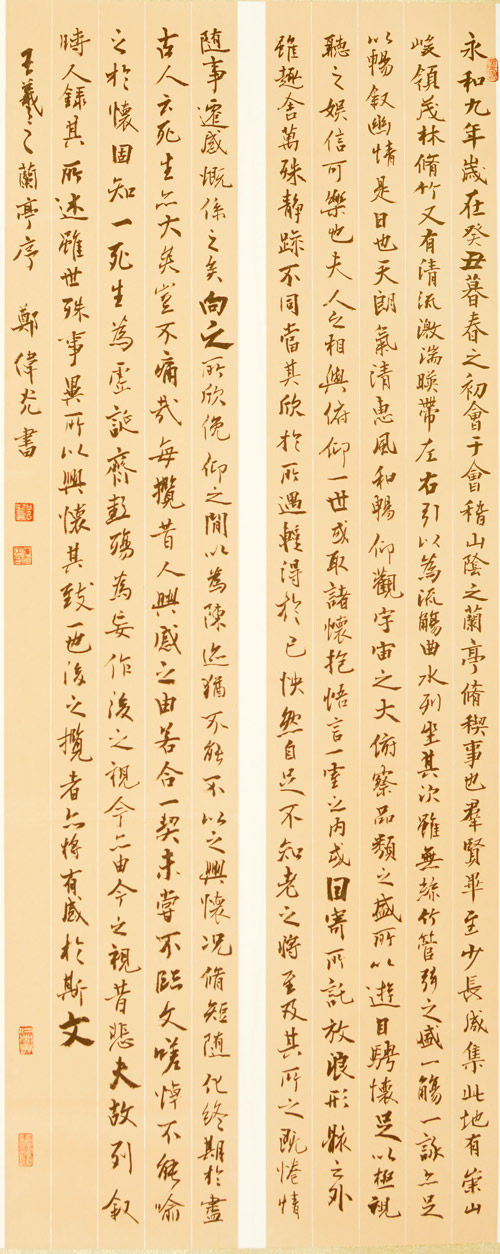 永和九年歲在癸丑暮春之初會于會稽山陰之蘭亭脩稧事也羣賢畢至少長咸集此地有崇山
峻領茂林脩竹又有清流激湍暎帶左右引以為流觴曲水列坐其次雖無絲竹管弦之盛一觴一詠亦足
以暢敘幽情是日也天朗氣清惠風和暢仰觀宇宙之大俯察品類之盛所以遊目騁懷足以極視
聽之娛信可樂也夫人之相與俯仰一世或取諸懷抱悟言一室之內或因寄所託放浪形骸之外
雖趣舍萬殊靜躁不同當其欣於所遇輕得於己怏然自足不知老之將至及其所之既惓情
隨事遷感慨係之矣向之所欣俛仰之間以為陳迹猶不能不以之興懷況脩短隨化終期於盡
古人云死生亦大矣豈不痛哉每攬昔人興感之由若合一契未嘗不臨文嗟悼不能喻
之於懷固知一死生為虛誕齊彭殤為妄作後之視今亦由今之視昔悲夫故列敘
時人錄其所述雖世殊事異所以興懷其致一也後之攬者亦將有感於斯文
王羲之蘭亭序 鄭偉尤書